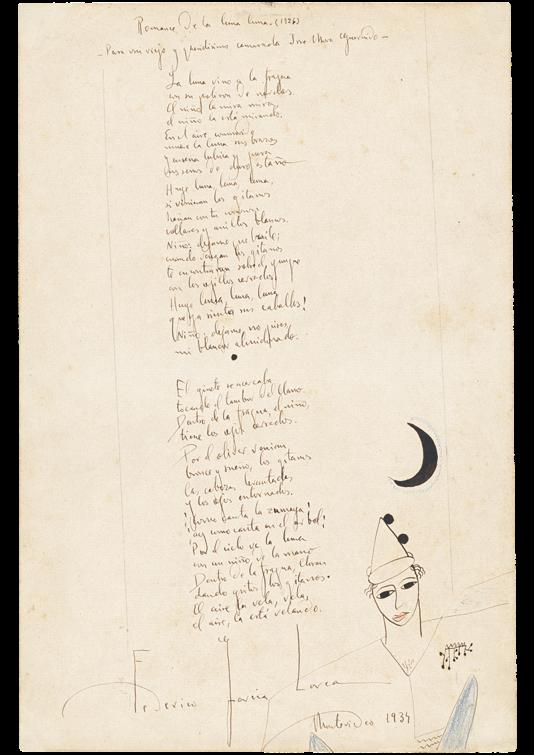 Romance de la luna luna. (1926)
- Para mi viejo y queridisimo camarada Jose Mora Guarnido -
La luna vino a la fragua
con su polison de nardos.
El niño la mira mira,
el niño la está mirando.
En el aire conmovido
mueve la luna sus brazos
y enseña lubrica y pura
sus senos de duro estaño
Huye luna, luna, luna,
si vinieran los gitanos
harian con tu corazon
collares y anillos blancos.
Niño; dejame que baile;
cuando vengan los gitanos
te encontraran sobre el yunque
con los ojillos cerrados.
Huye luna, luna, luna
que ya siento sus caballos!
Niño, dejame, no pises,
mi blancor almidonado.
El ginete se acercaba
tocando el tambor del llano
Dentro de la fragua, el niño,
tiene los ojos cerrados.
Por el olivar venian
bronce y sueño, los gitanos
las cabezas levantadas
y los ojos entornados.
¡Como canta la zumaya!
¡ay como canta en el arbol!
Por el cielo va la luna
con un niño de la mano
Dentro de la fragua, lloran
dando gritos los gitanos.
El aire la vela, vela,
el aire, la está velando.
Federico García Lorca
Montevideo 1934